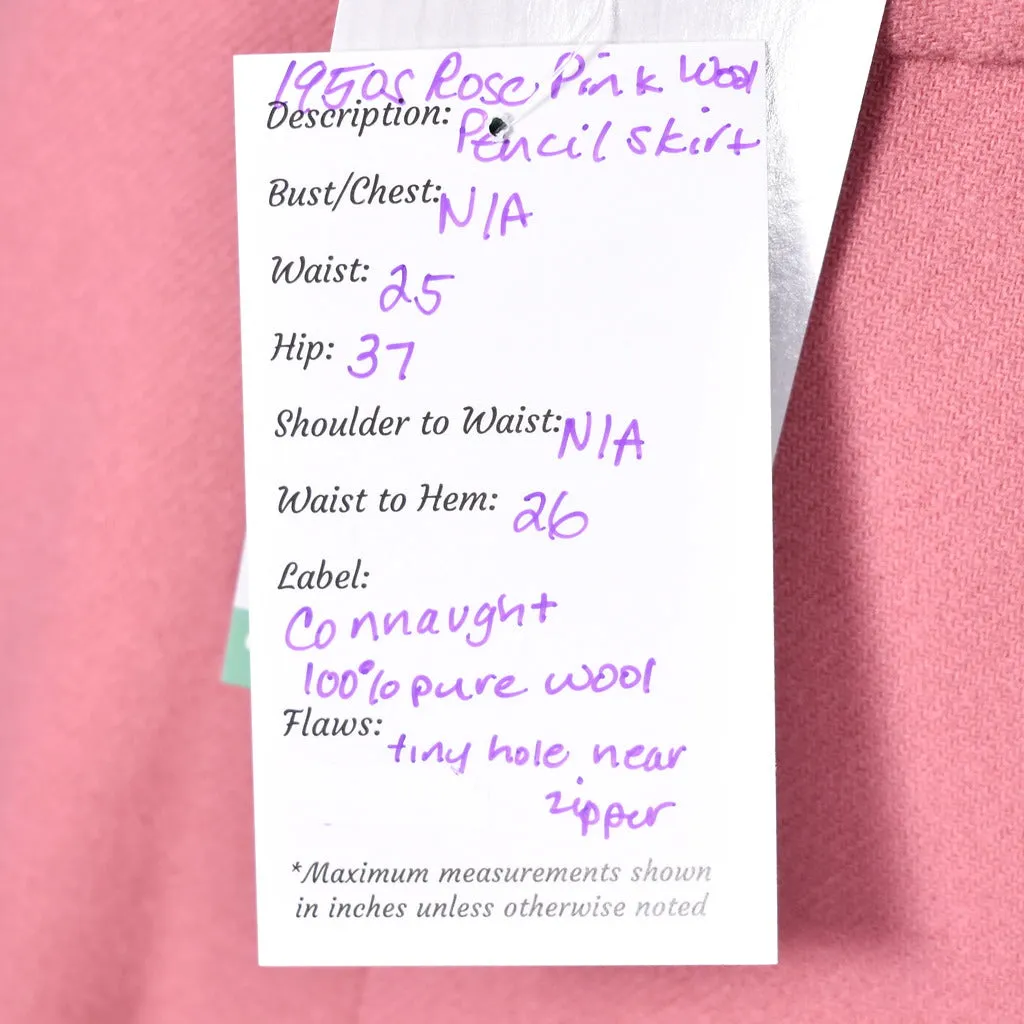 1950s Rose Pink Wool
Description: Pencil skirt
Bust/Chest: N/A
Waist: 25
Hip: 37
Shoulder to Waist: N/A
Waist to Hem: 26
Label:
Connaught
100% pure wool
Flaws: tiny hole near
zipper
*Maximum measurements shown
in inches unless otherwise noted